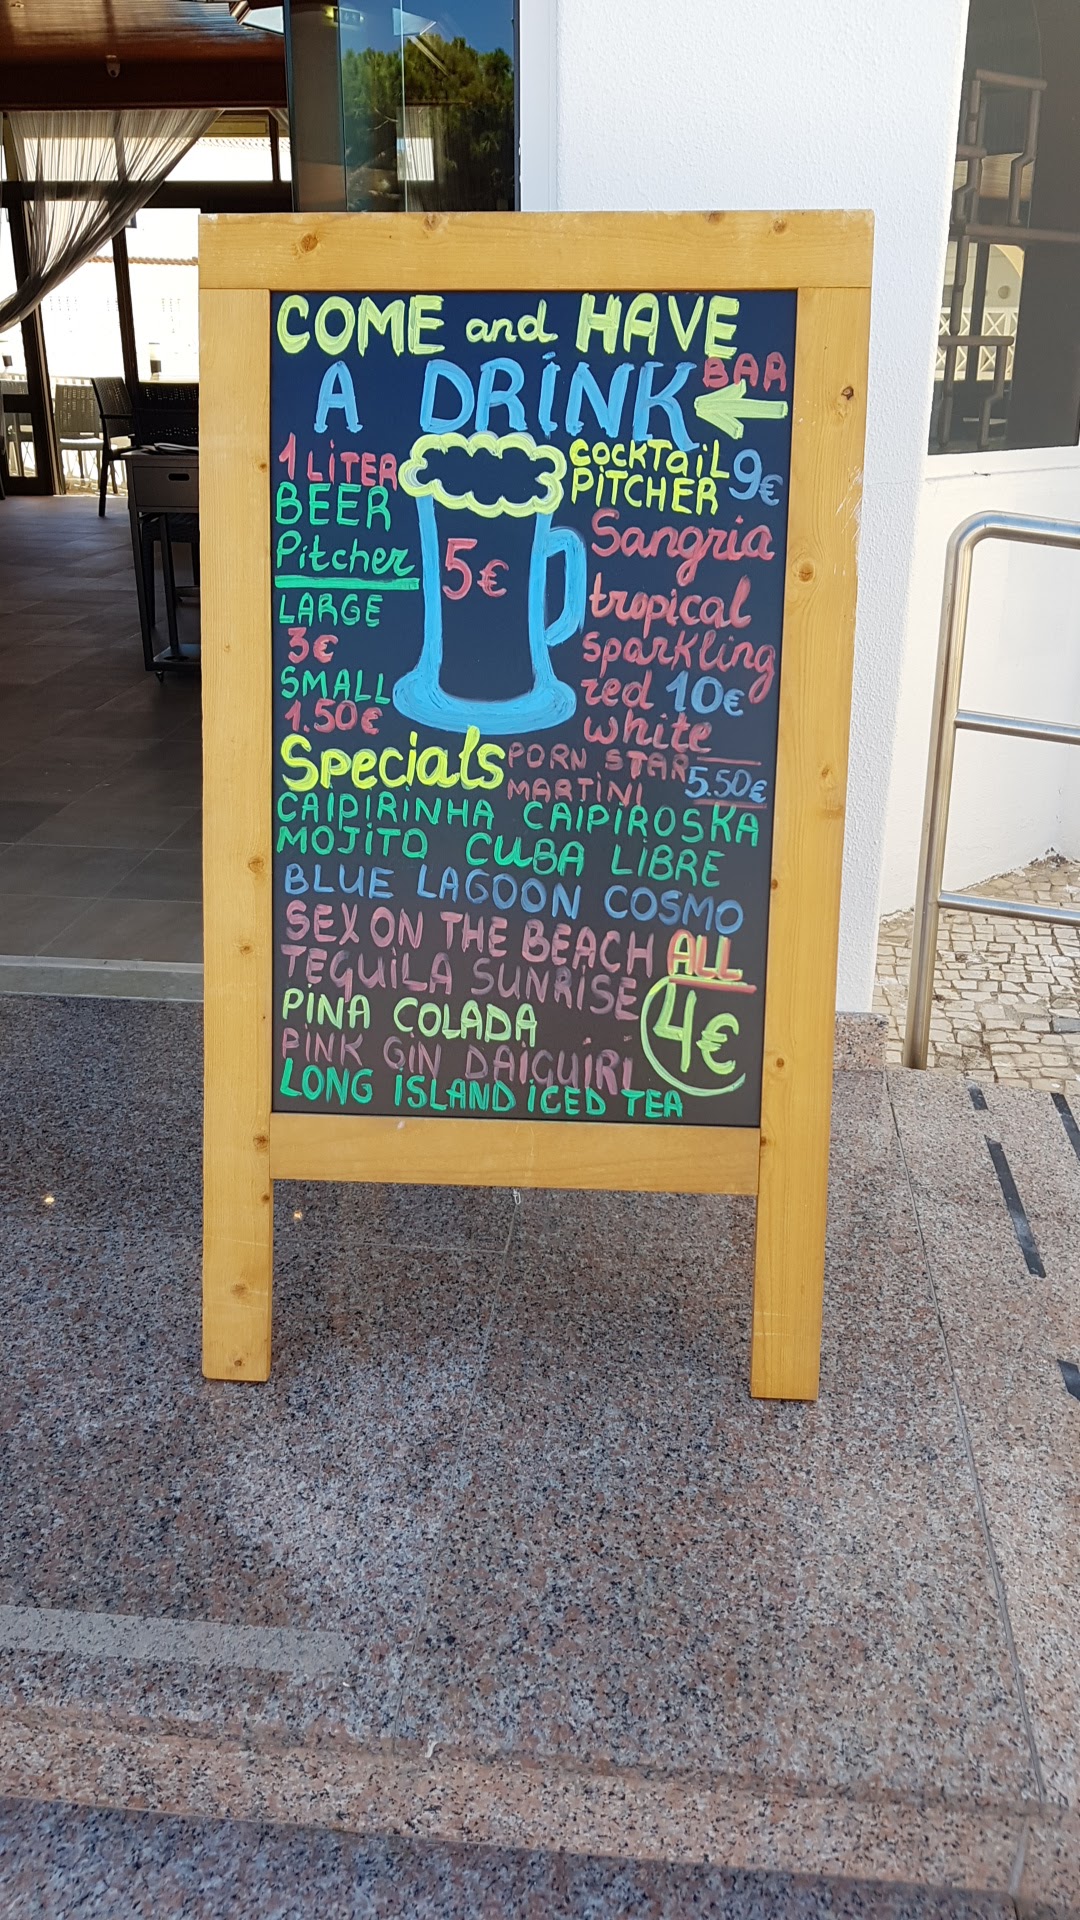 COME and HAVE
A DRINK BAR
1 LITER
BEER
Pitcher
5€
LARGE
3€
SMALL
1.50€
COCKTAIL
PITCHER 9€
Sangria
tropical
sparkling
red 10€
white
Specials PORN STAR
MARTINI 5.50€
CAIPIRINHA CAIPIROSKA
MOJITO CUBA LIBRE
BLUE LAGOON COSMO
SEX ON THE BEACH ALL
TEQUILA SUNRISE 4€
PINA COLADA
PINK GIN DAIQUIRI
LONG ISLAND ICED TEA